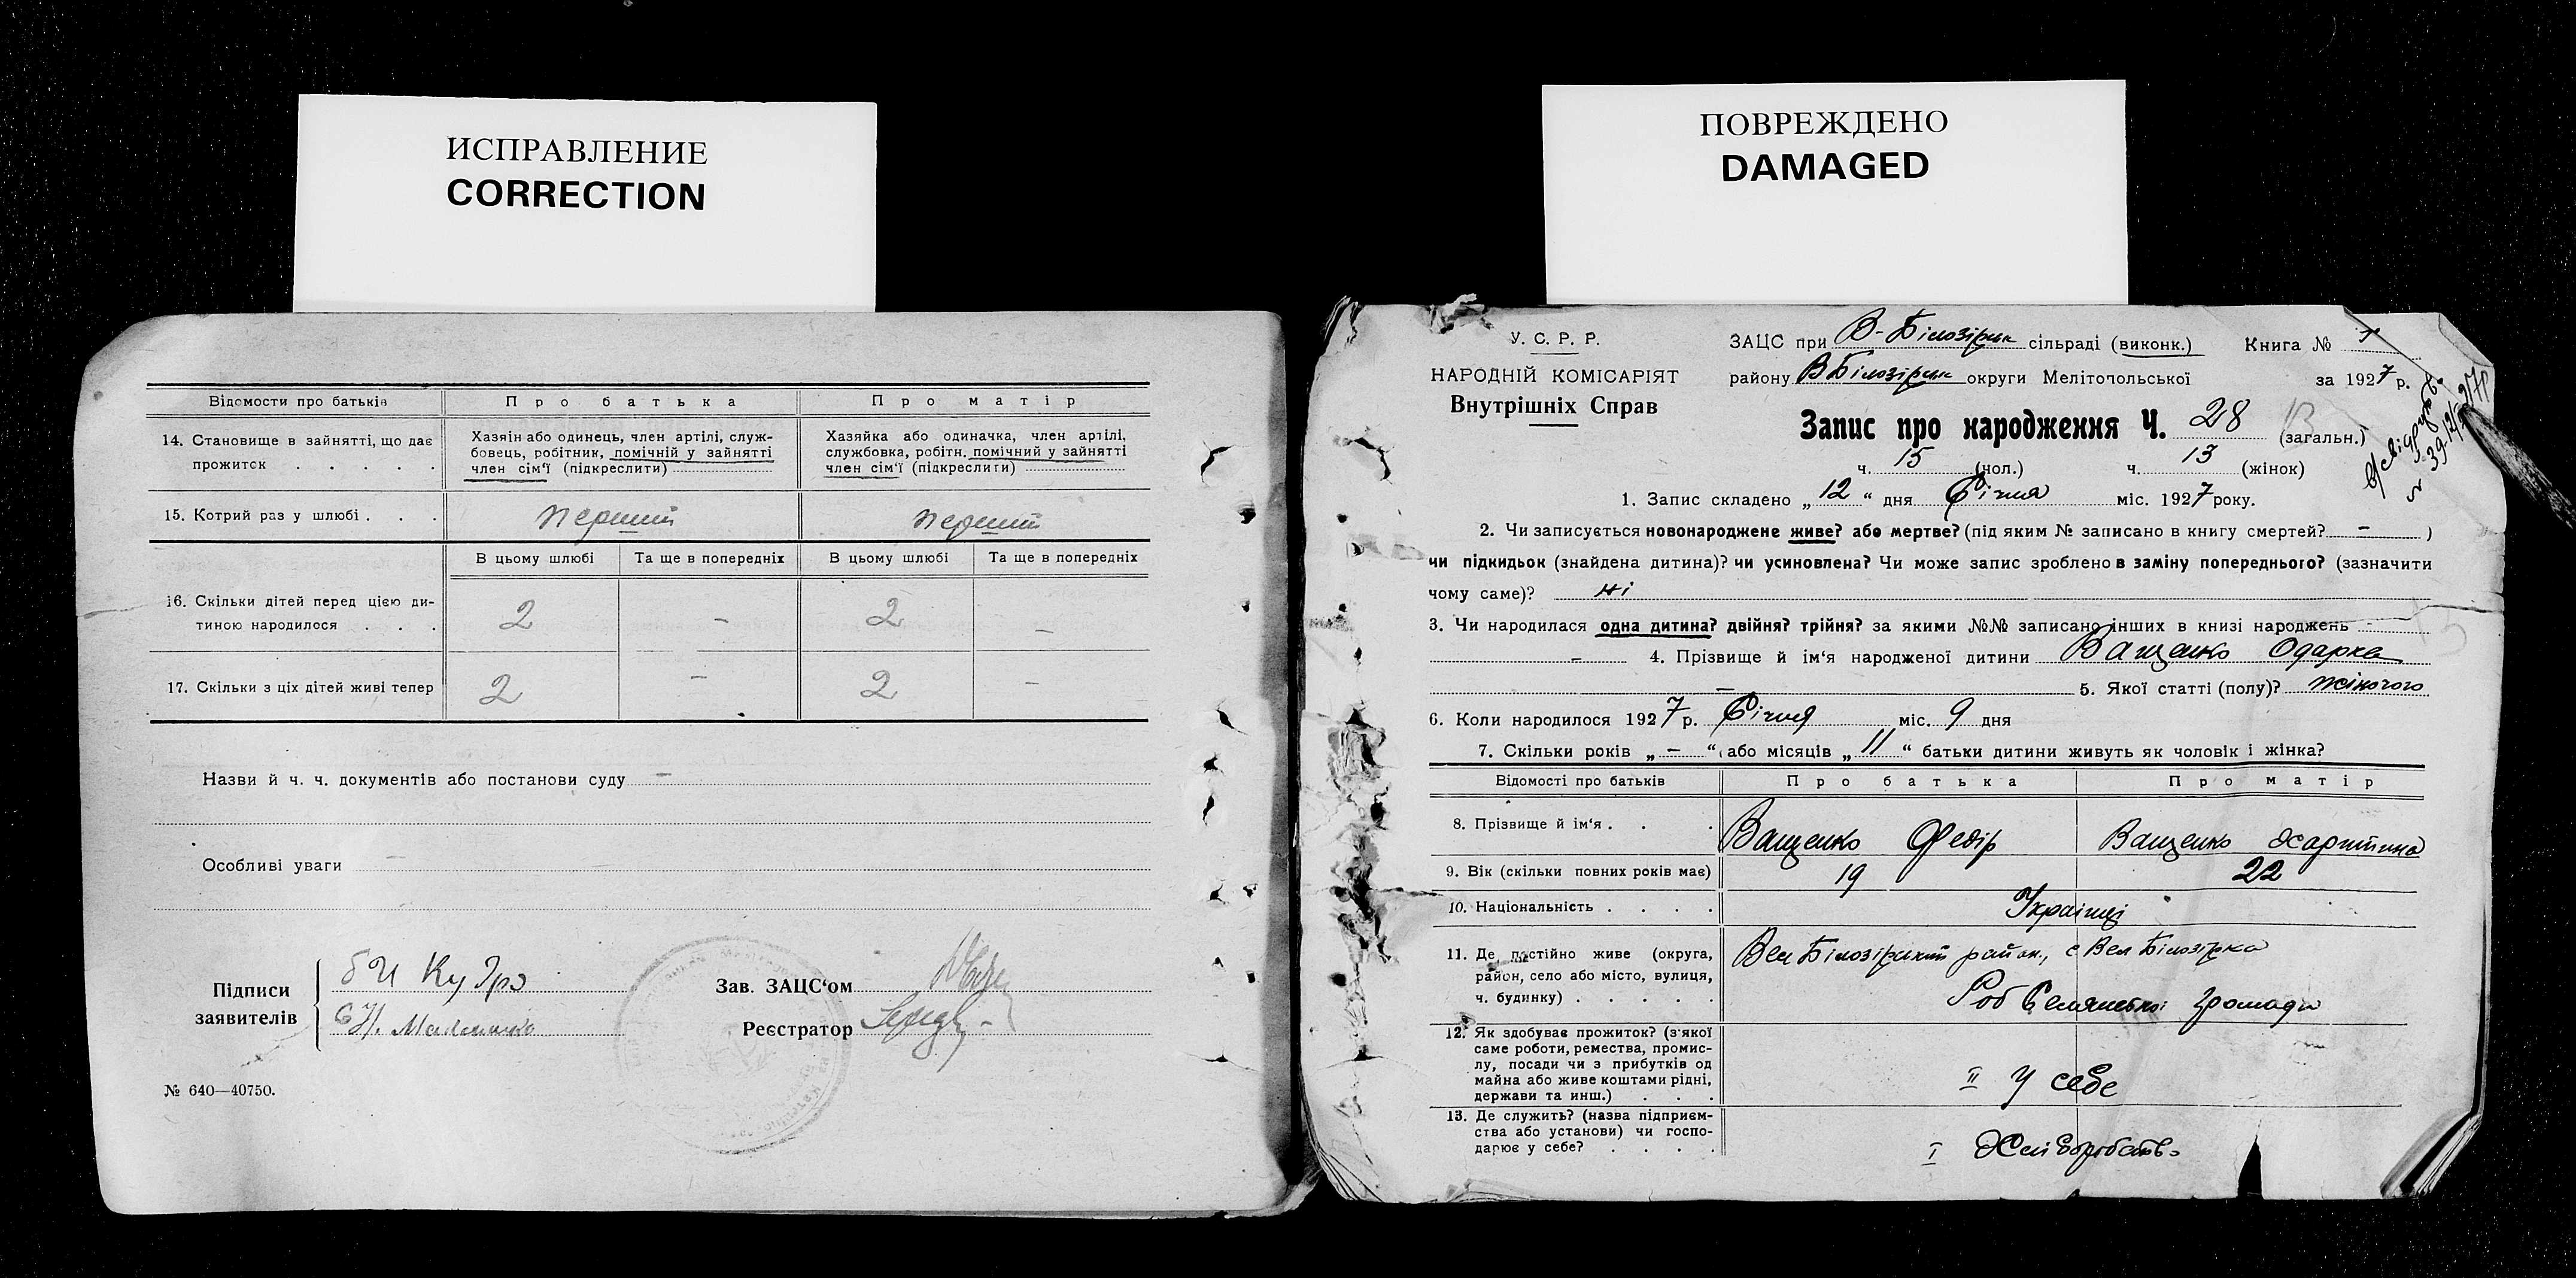 ИСПРАВЛЕНИЕ
CORRECTION
Відомости про батьків
Про батька
Про матір
14. Становище в зайнятті, що дає
прожиток . . . . .
Хазяін або одинець, член артілі, служ-
бовець, робітник, помічній у зайнятті
член сім'ї (підкреслити)
Хазяйка або одиначка, член артілі,
службовка, робітн. помічний у зайнятті
член сім'ї (підкреслити)
15. Котрий раз у шлюбі . . .
перший
перший
В цьому шлюбі
Та ще в попередніх
В цьому шлюбі
Та ще в попередніх
16. Скільки дітей перед цією ди-
тиною народилося . . .
2 – 2 –
17. Скільки з ціх дітей живі тепер
2 – 2 –
Назви й ч. ч. документів або постанови суду –
Особливі уваги –
Підписи
заявителів
Зав. ЗАЦС'ом
Реєстратор
№ 640—40750.
ПОВРЕЖДЕНО
DAMAGED
У. С. Р. Р.
НАРОДНІЙ КОМІСАРІЯТ
Внутрішніх Справ
ЗАЦС при В-Білозірськ сільраді (виконк.) Книга №
району ВБілозірськ округи Мелітопольської за 1927 р.
Запис про народження Ч. 28 (загальн.)
ч. 15 (чол.) ч. 13 (жінок)
1. Запис складено „12“ дня Січня міс. 1927 року.
2. Чи записується новонароджене живе? або мертве? (під яким № записано в книгу смертей? – )
чи підкидьок (знайдена дитина)? чи усиновлена? Чи може запис зроблено в заміну попереднього? (зазначити
чому саме)? ні
3. Чи народилася одна дитина? двійня? трійня? за якими №№ записано інших в книзі народжень -
– 4. Прізвище й ім'я народженої дитини Ващенко Одарка
– 5. Якої статті (полу)? жіночого
6. Коли народилося 1927 р. Січня міс. 9 дня
7. Скільки років „ – “ або місяців „ 11 “ батьки дитини живуть як чоловік і жінка?
Відомості про батьків
Про батька
Про матір
8. Прізвище й ім'я . . .
Ващенко Федір
Ващенко Харитина
9. Вік (скільки повних років має)
19
22
10. Національність . . . .
Українці
11. Де постійно живе (округа,
район, село або місто, вулиця,
ч. будинку) . . . . .
Вел Білозірський район, с Вел Білозірка
Роб Селянської громади
12. Як здобуває прожиток? (з'якої
саме роботи, ремества, промис-
лу, посади чи з прибутків од
майна або живе коштами рідні,
держави та инш.) . . .
II У себе
13. Де служить? (назва підприєм-
ства або установи) чи госпо-
дарює у себе? . . . .
I Хліборобств.